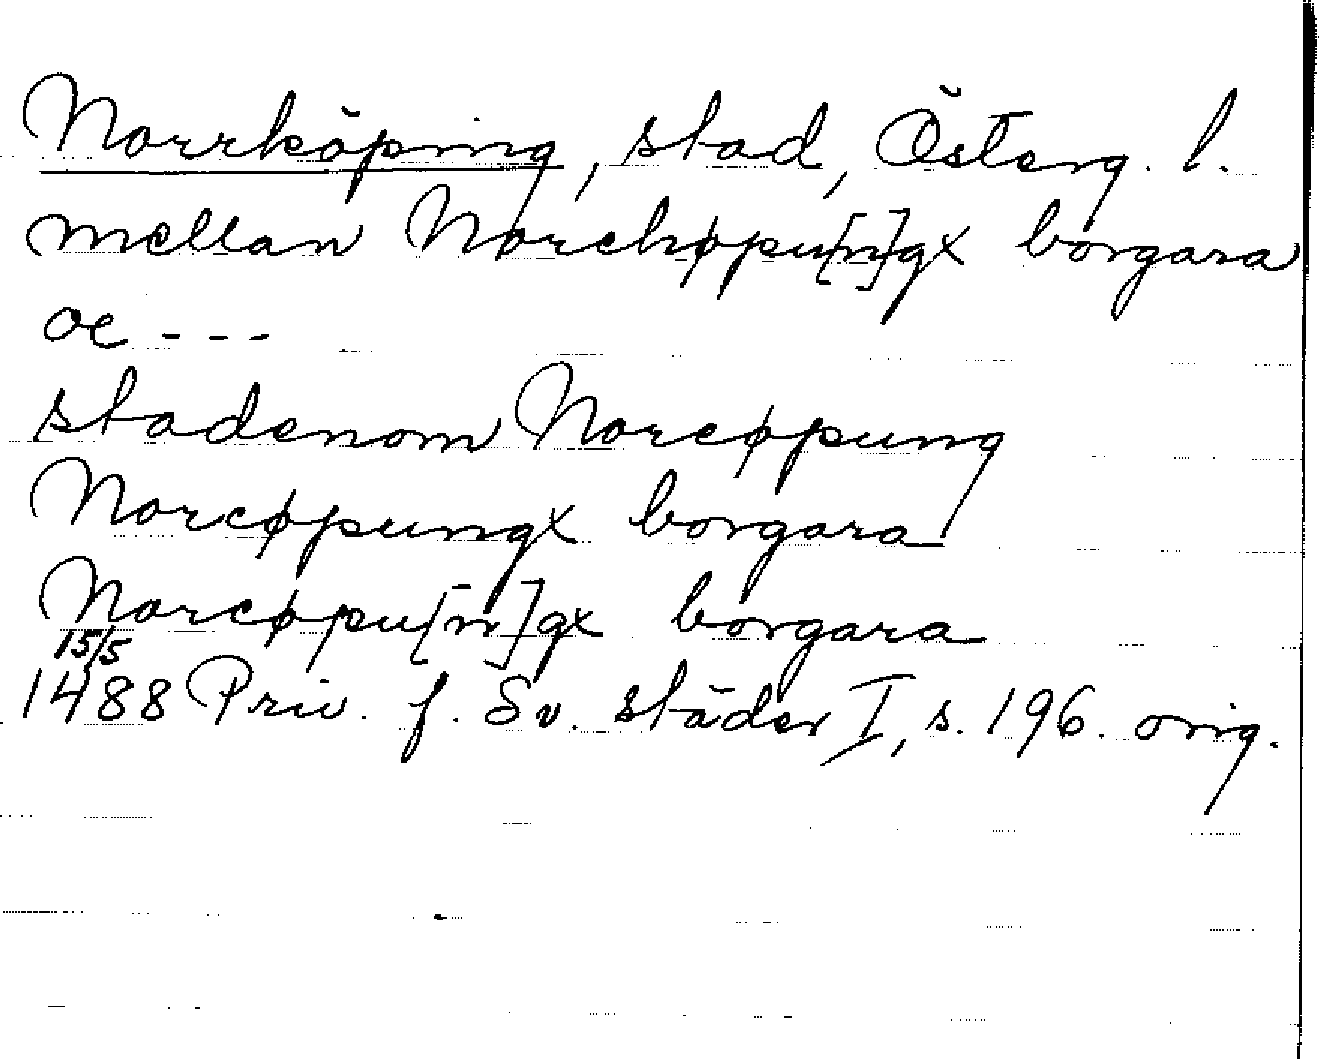 Norrköping, stad, Österg. l.
mellan Norchøpu[n]gx borgara
oc - - -
stadenom Norcøpung
Norcøpungx borgara
Norcøpu[n]gx borgara
15/5
1488 Priv. f. Sv. städer I, s. 196. orig.